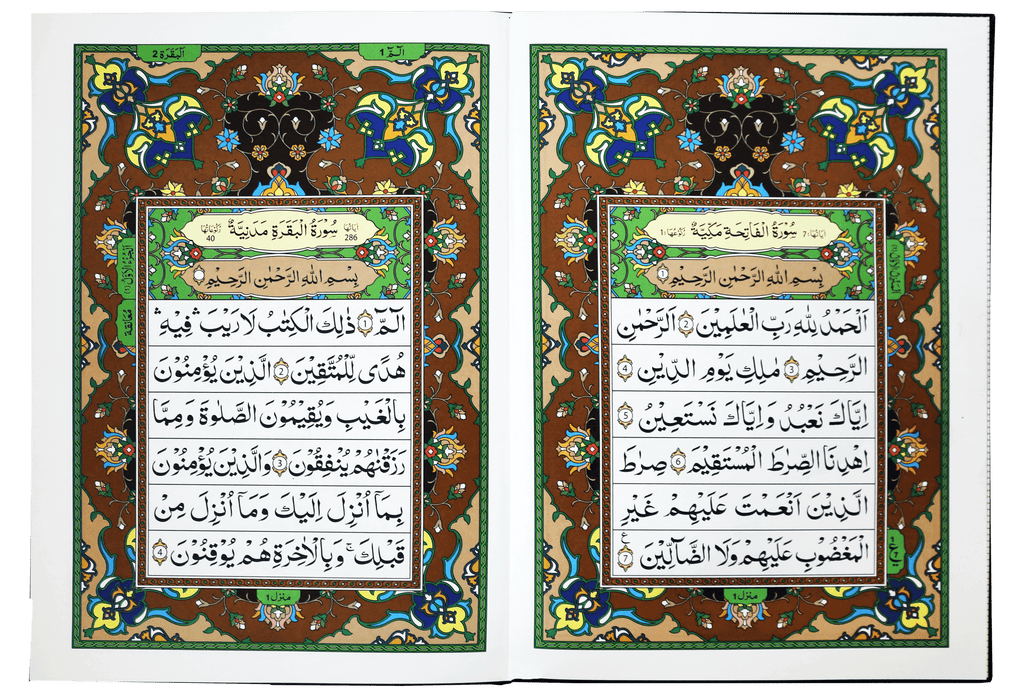 سُوْرَةُ الْفَاتِحَةِ مَكِّيَّةٌ
اٰيَاتُهَا: 7
رُكُوْعُهَا: 1
بِسْمِ اللهِ الرَّحْمٰنِ الرَّحِيْمِ 1
اَلْحَمْدُ لِلّٰهِ رَبِّ الْعٰلَمِيْنَ 2 الرَّحْمٰنِ
الرَّحِيْمِ 3 مٰلِكِ يَوْمِ الدِّيْنِ 4
اِيَّاكَ نَعْبُدُ وَاِيَّاكَ نَسْتَعِيْنُ 5
اِهْدِنَا الصِّرَاطَ الْمُسْتَقِيْمَ 6 صِرَاطَ
الَّذِيْنَ اَنْعَمْتَ عَلَيْهِمْ غَيْرِ
الْمَغْضُوْبِ عَلَيْهِمْ وَلَا الضَّآلِّيْنَ 7 ع
منزل 1
اَلْبَقَرَة 2
الٓمّٓ 1
سُوْرَةُ الْبَقَرَةِ مَدَنِيَّةٌ
اٰيَاتُهَا 286
رُكُوْعَاتُهَا 40
بِسْمِ اللهِ الرَّحْمٰنِ الرَّحِيْمِ
الٓمّٓ 1 ذٰلِكَ الْكِتٰبُ لَا رَيْبَ ۛ فِيْهِ ۛ
هُدًى لِّلْمُتَّقِيْنَ 2 الَّذِيْنَ يُؤْمِنُوْنَ
بِالْغَيْبِ وَيُقِيْمُوْنَ الصَّلٰوةَ وَمِمَّا
رَزَقْنٰهُمْ يُنْفِقُوْنَ 3 وَالَّذِيْنَ يُؤْمِنُوْنَ
بِمَآ اُنْزِلَ اِلَيْكَ وَمَآ اُنْزِلَ مِنْ
قَبْلِكَ ۚ وَبِالْاٰخِرَةِ هُمْ يُوْقِنُوْنَ 4
منزل 1
اَلْجُزْءُ الْاَوَّلُ (1)
مُعَانَقَة